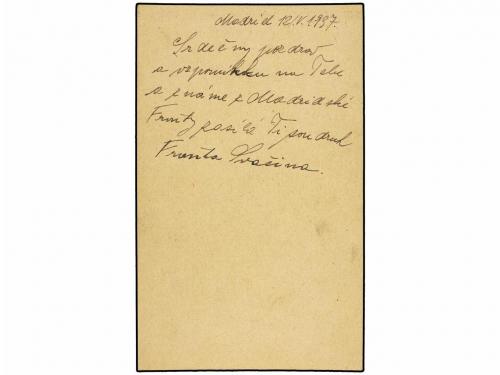 Madrid 12/V. 1937.
Srdečný pozdrav
a vzpomínku na Tebe
a známé z Madridské
Fronty posílá Ti soudruh
Franta Svačina.